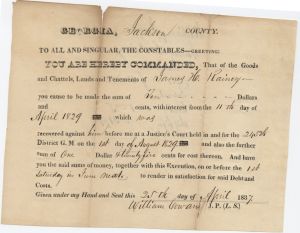 GEORGIA, Jackson COUNTY.
TO ALL AND SINGULAR, THE CONSTABLES—GREETING:
YOU ARE HEREBY COMMANDED, That of the Goods
and Chattels, Lands and Tenements of James H. Rainey
you cause to be made the sum of Ten Dollars
and cents, with interest from the 11th day of
April 1829 which was
recovered against him before me at a Justice's Court held in and for the 245th
District G. M. on the 1st day of August 1829 and also the further
sum of One Dollar cents for cost thereon. And have
you the said sums of money, together with this Execution, on or before the 1st
Saturday in June next to render in satisfaction for said Debt and
Costs.
Given under my Hand and Seal this 25th day of April 1837
William Cowan J. P. (L. S.)